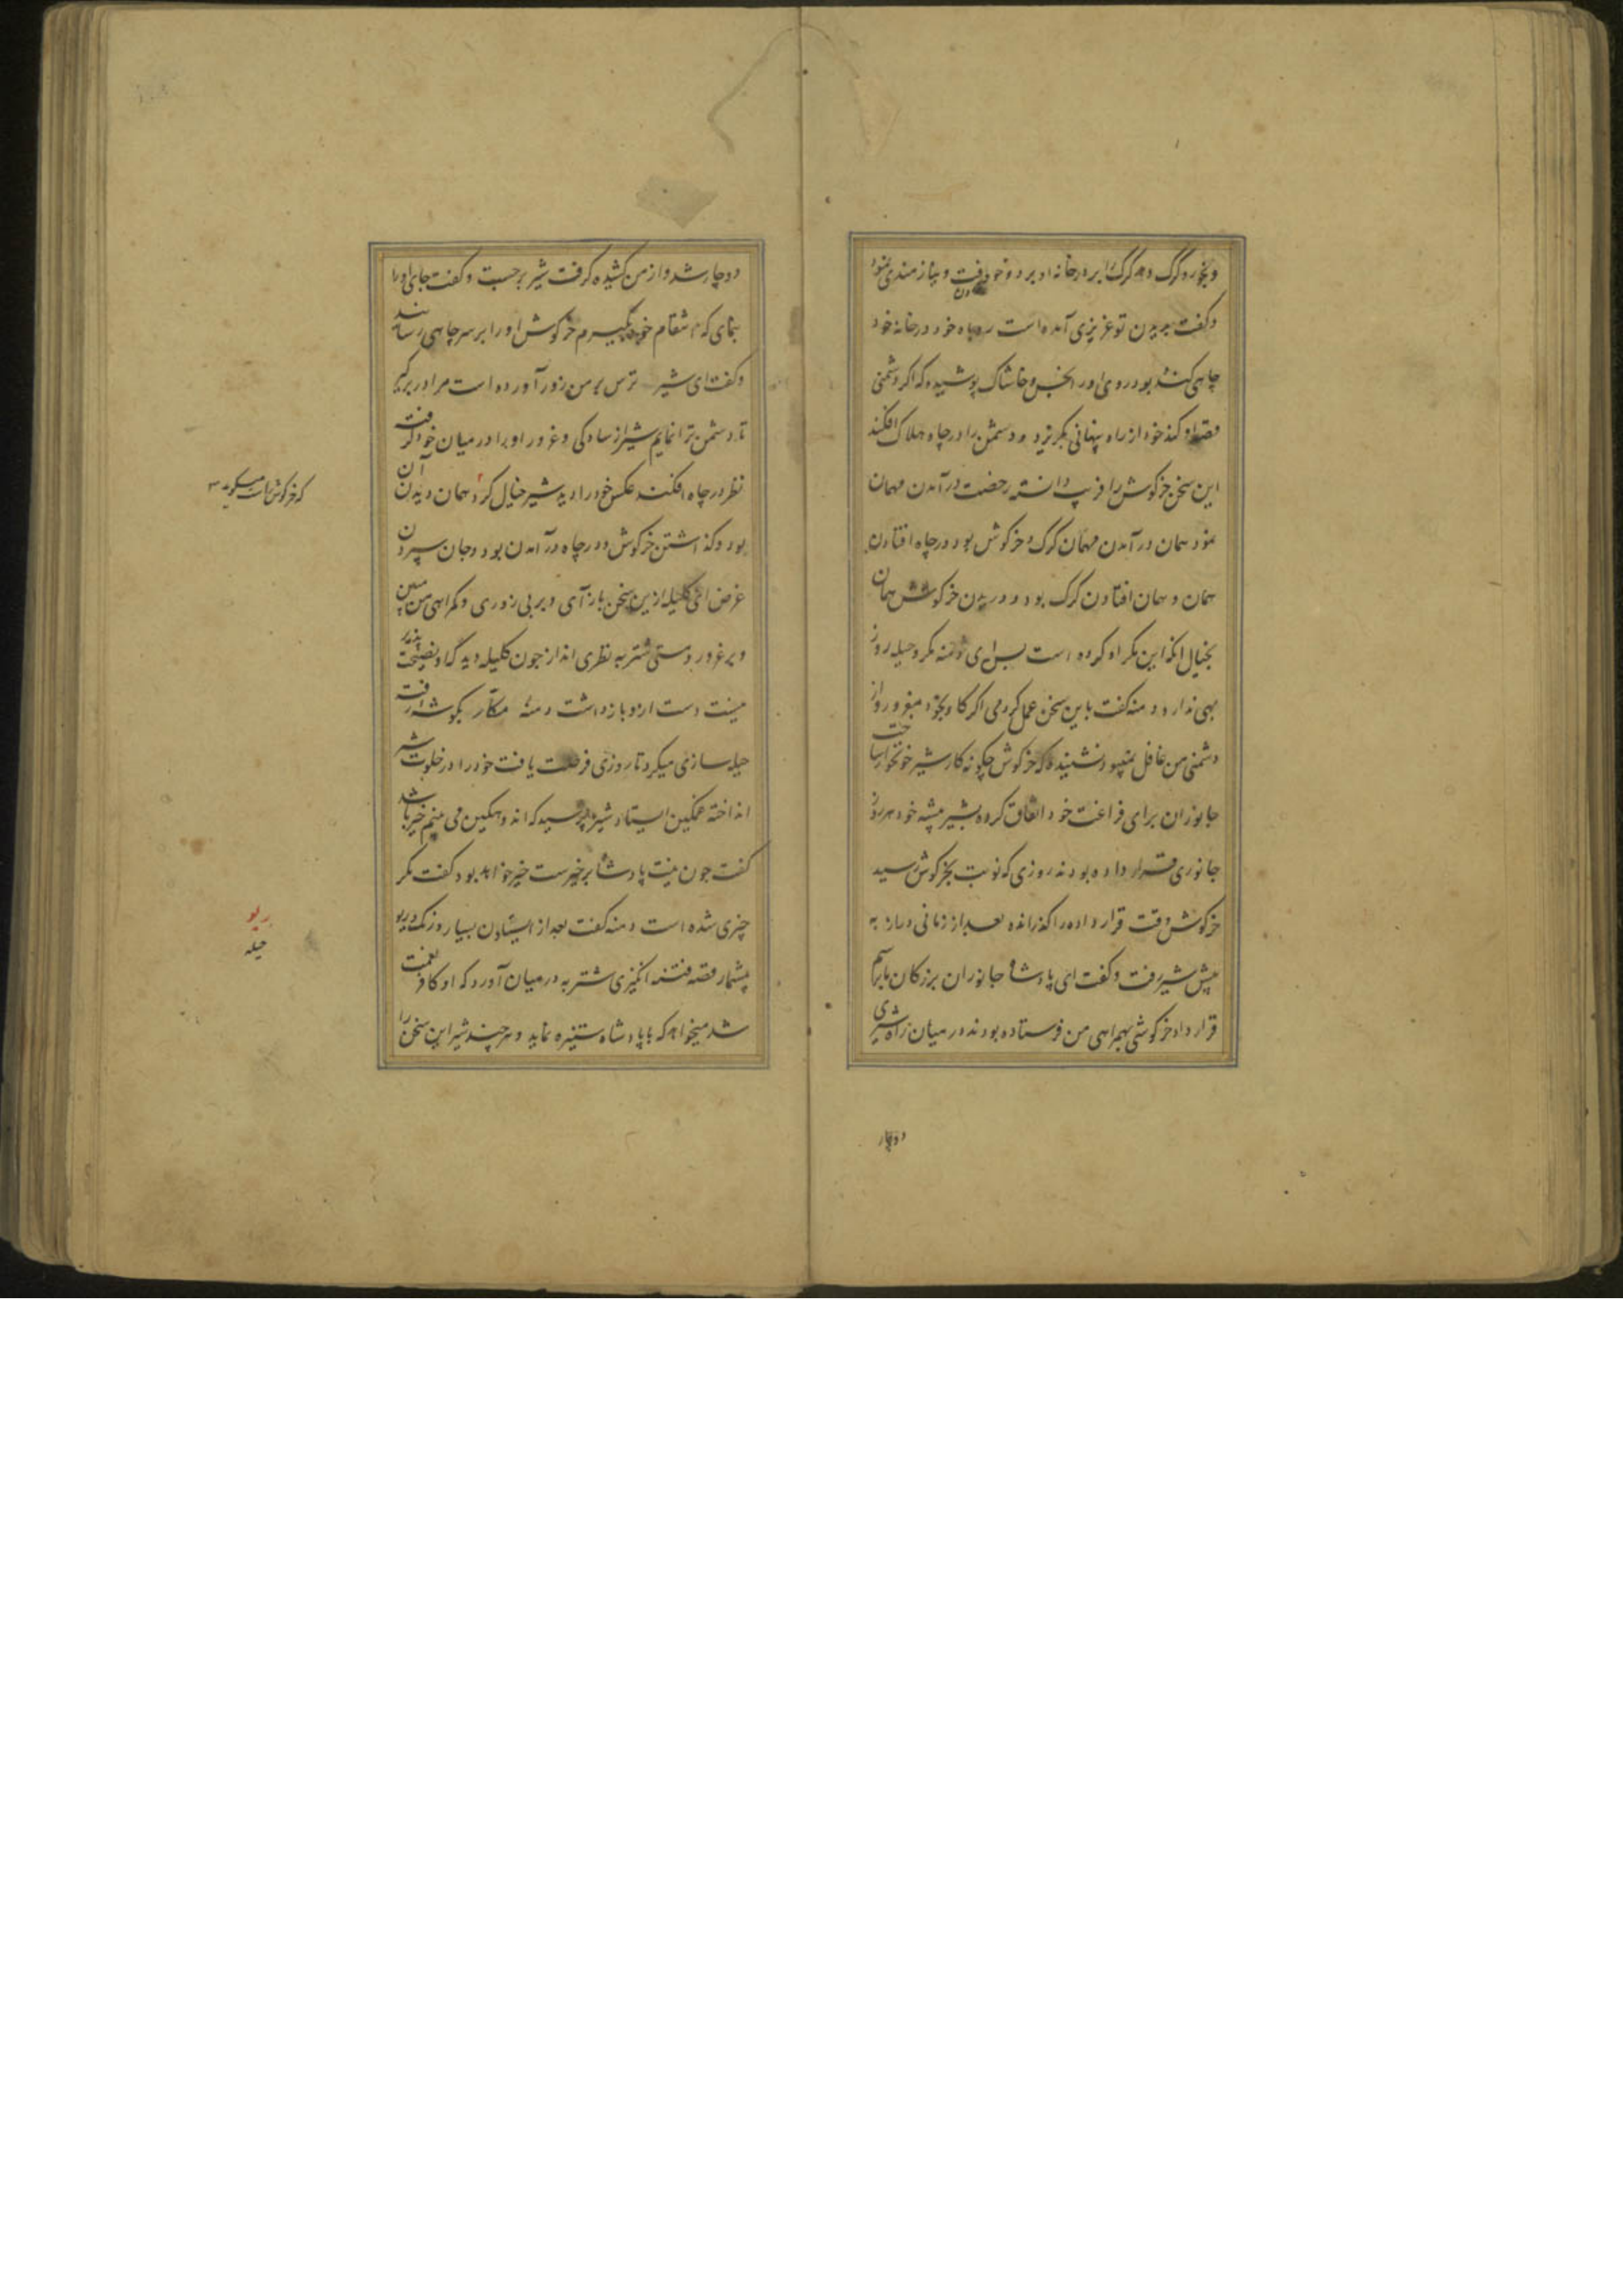 و بخورد گرگ و گرگ را بر در خانه او برد و خود رفت و نیازمندی نمود
و گفت بدیدن تو عزیزی آمده است روباه خود در خانه خود
چاهی کنده بود و روی او را بخس و خاشاک پوشیده که اگر دشمنی
قصد او کند خود از راه پنهانی بگریزد و دشمن را در چاه هلاک افکند
این سخن خرگوش را فریب دانسته رخصت در آمدن مهمان
نمود همان در آمدن مهمان گرگ و خرگوش بود در چاه افتادن
همان و همان افتادن گرگ بود و دریدن خرگوش همان
بخیال آنکه این مکر او کرده است پس ای دمنه مکر و حیله روز
بهی ندارد دمنه گفت باین سخن عمل کردمی اگر گاو بخود مغرور و از
دشمنی من غافل نمیبود نشنیده که خرگوش چگونه کار شیر خونخوار ساخت
جانوران برای فراغت خود اتفاق کرده بشیر بیشه خود هر روز
جانوری قرار داده بودند روزی که نوبت بخرگوش رسید
خرگوش وقت قرار داده را گذرانده بعد از زمانی دراز به
پیش شیر رفت و گفت ای پادشاه جانوران بزرگان ما برسم
قرار داد خرگوشی بهمراهی من فرستاده بودند در میان راه شیری
دوچار
دوچار شد و از من کشیده گرفت شیر برجست و گفت جای او را
بنمای که انتقام خود بگیرم خرگوش او را بر سر چاهی رسانند
و گفت ای شیر ترس بر من زور آورده است مرا در بر گیر
تا دشمن ترا نمایم شیر از سادگی و غرور او را در میان خود گرفت
نظر در چاه افکند عکس خود را دید شیر خیال کرد همان دیدن آن
بود و گذاشتن خرگوش و در چاه در آمدن بود و جان سپردن
غرض ای کلیله ازین سخن باز آی و بر بی زوری و گمراهی من مبین
و بر غرور و مستی شتربه نظری انداز چون کلیله دید که او نصیحت پذیر
نیست دست ازو باز داشت دمنه مکار بگوشه رفت
حیله سازی میکرد تا روزی فرصت یافت خود را در خلوت شیر
انداخته غمگین ایستاد شیر پرسید که اندوهگین می بینم خیر باشد
گفت چون نیت پادشاه بر خیرست خیر خواهد بود گفت مگر
چیزی شده است دمنه گفت بعد از ایستادن بسیار و رنگ و ریو
بیشمار قصه فتنه انگیزی شتربه در میان آورد که او کافر نعمت
شد میخواهد که با پادشاه ستیزه نماید و هر چند شیر این سخن را
ریو
حیله